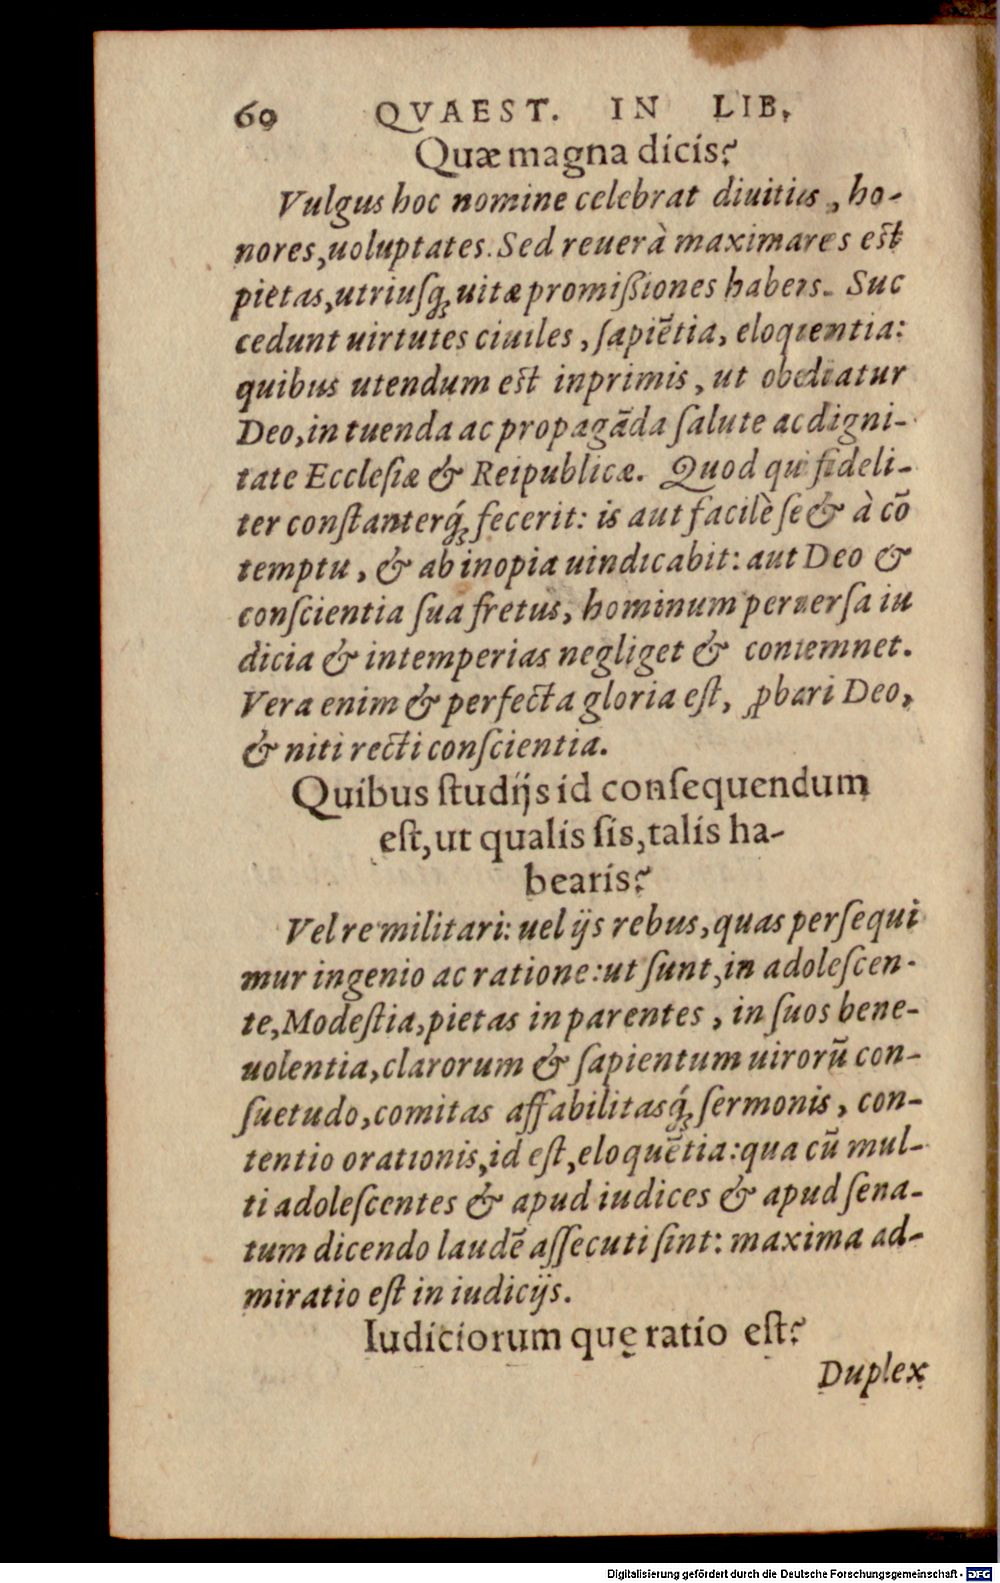 60 QVAEST. IN LIB.
Quæ magna dicis?
Vulgus hoc nomine celebrat diuitias, ho-
nores, uoluptates. Sed reuerà maxima res est
pietas, utriusq́; uitæ promißiones habens. Suc
cedunt uirtutes ciuiles, ſapiẽtia, eloquentia:
quibus utendum est inprimis, ut obediatur
Deo, in tuenda ac propagãda ſalute ac digni-
tate Eccleſiæ & Reipublicæ. Quod qui fideli-
ter conſtanterq́; fecerit: is aut facilè ſe & à cõ
temptu, & ab inopia uindicabit: aut Deo &
conſcientia ſua fretus, hominum peruerſa iu
dicia & intemperias negliget & contemnet.
Vera enim & perfecta gloria eſt, ꝓbari Deo,
& niti recti conſcientia.
Quibus ſtudijs id conſequendum
eſt, ut qualis ſis, talis ha-
bearis?
Vel re militari: uel ijs rebus, quas perſequi
mur ingenio ac ratione: ut ſunt, in adoleſcen-
te, Modeſtia, pietas in parentes, in ſuos bene-
uolentia, clarorum & ſapientum uirorũ con-
ſuetudo, comitas affabilitasq́; ſermonis, con-
tentio orationis, id eſt, eloquẽtia: qua cũ mul-
ti adoleſcentes & apud iudices & apud ſena-
tum dicendo laudẽ aſſecuti ſint: maxima ad-
miratio eſt in iudicijs.
Iudiciorum quę ratio eſt?
Duplex
Digitalisierung gefördert durch die Deutsche Forschungsgemeinschaft - DFG